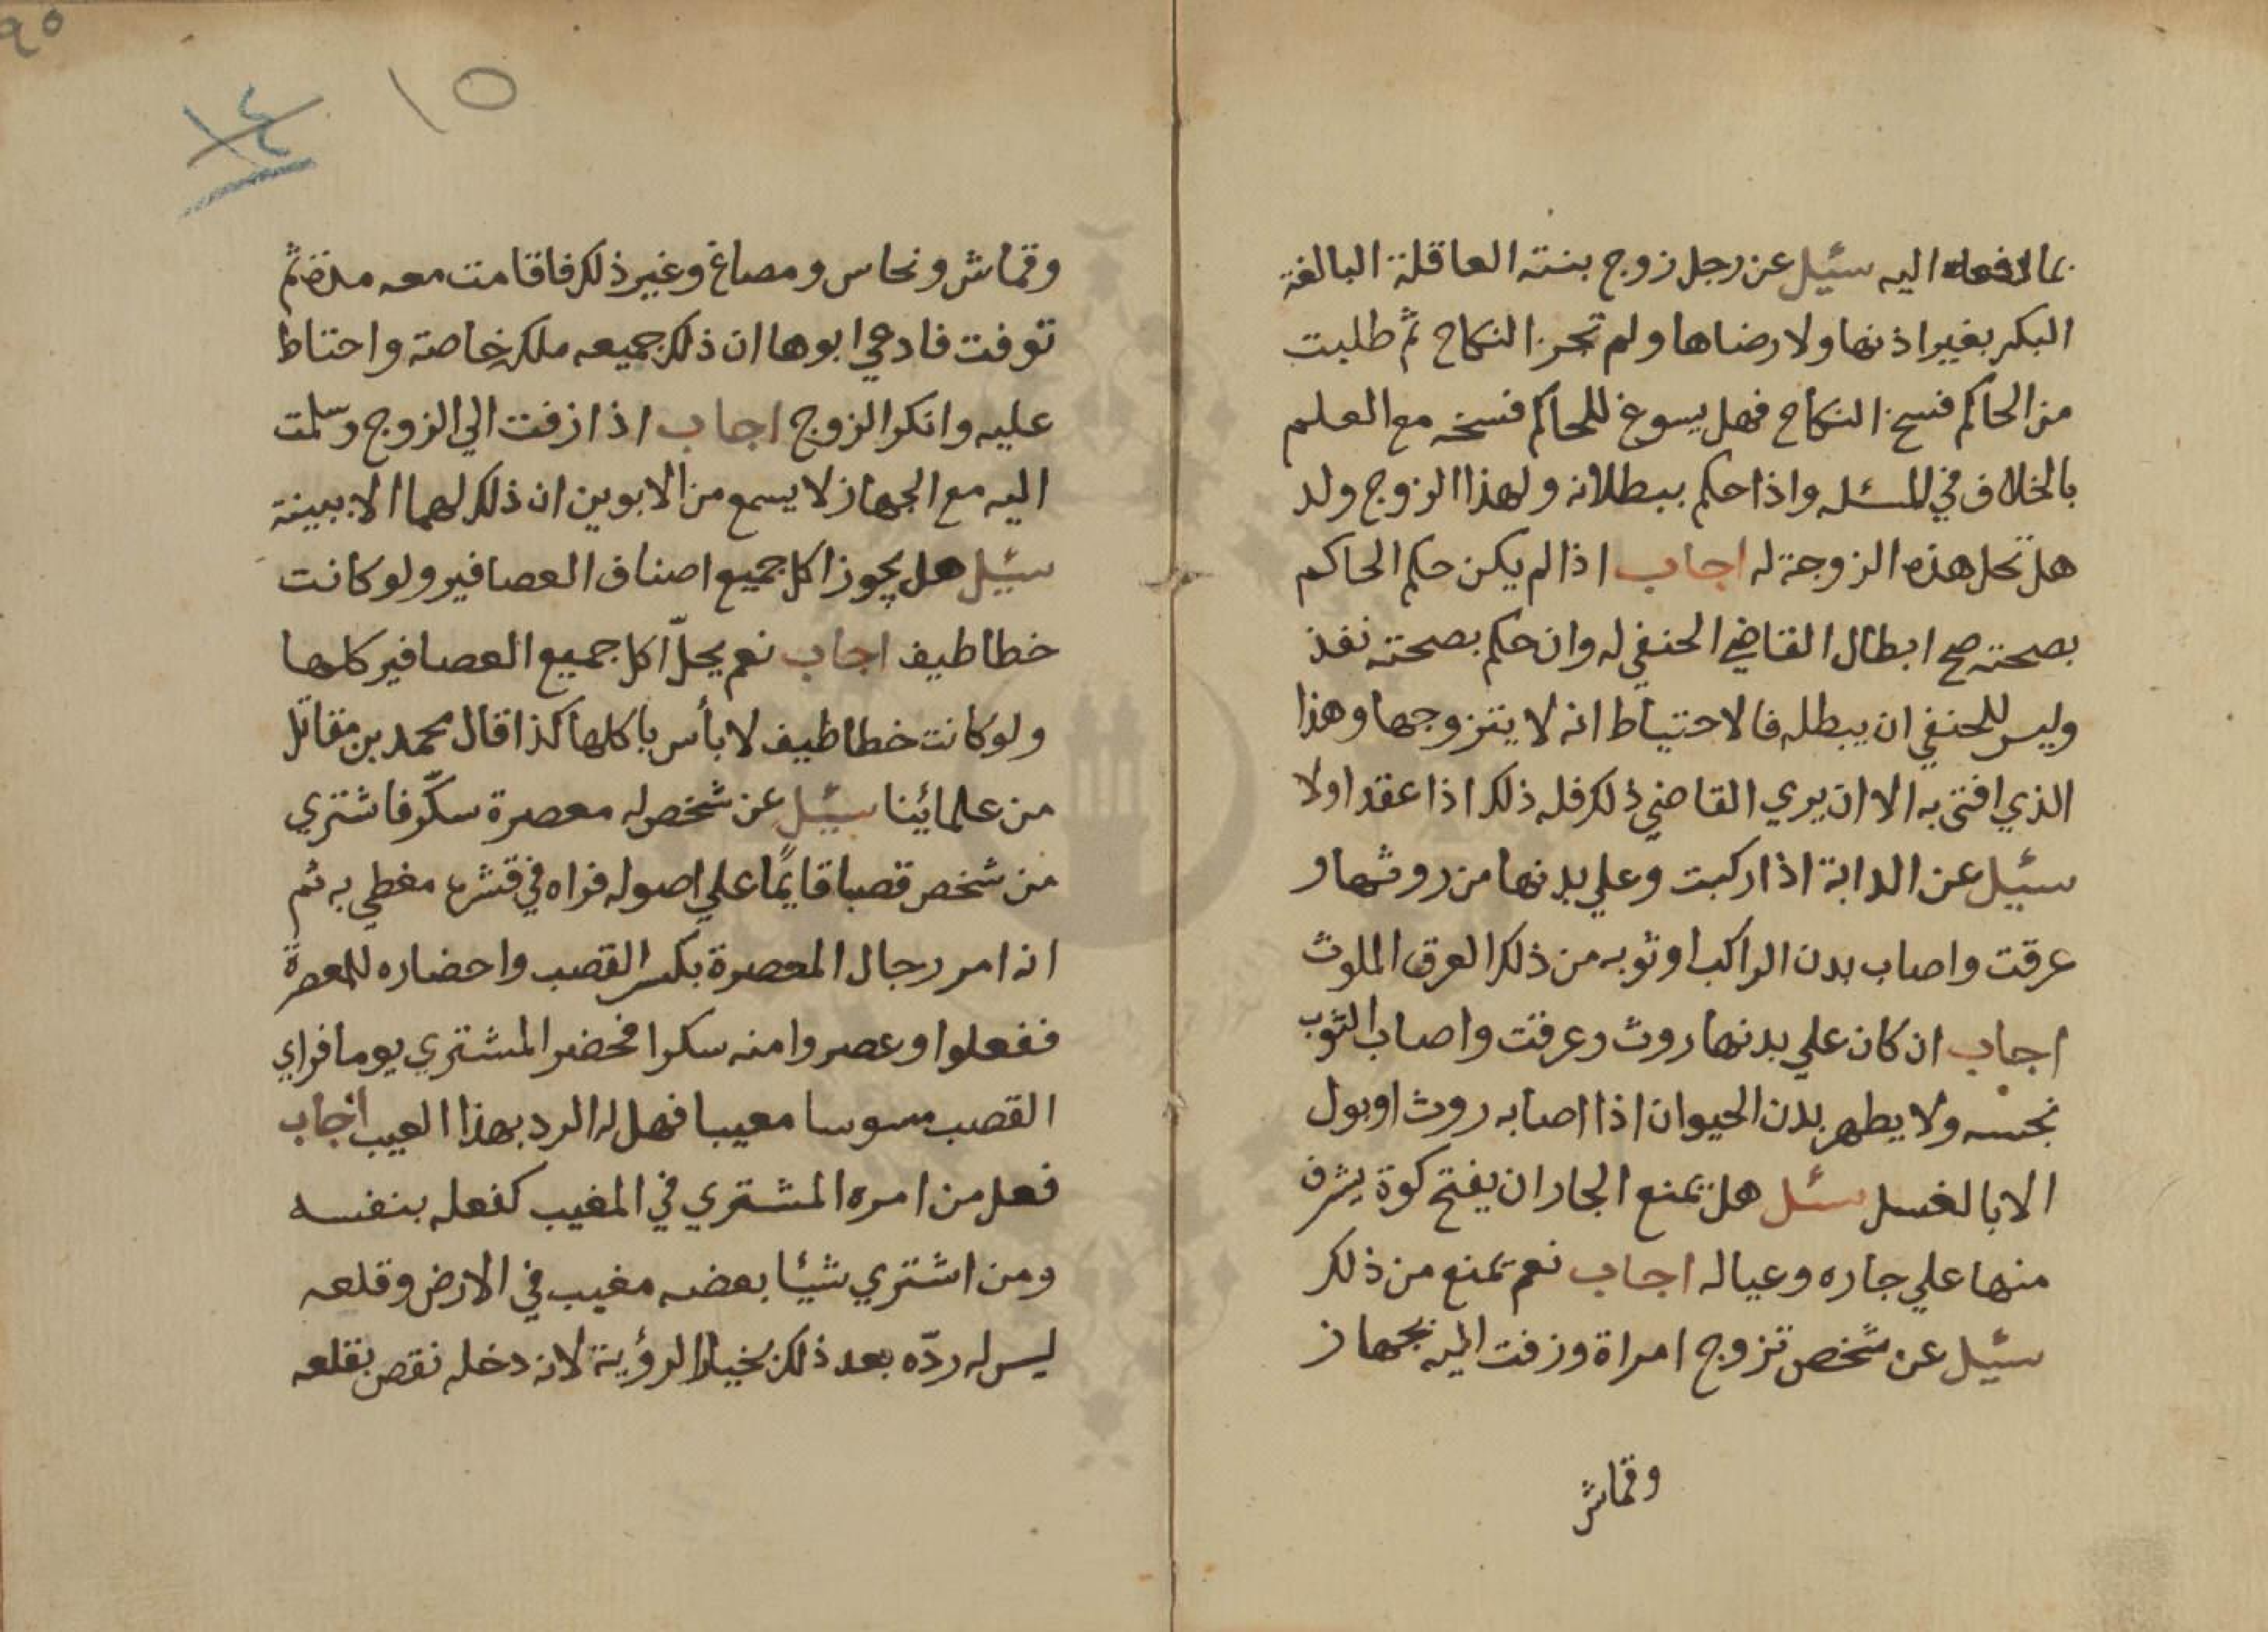 بما دفعه اليه سئيل عن رجل زوج بنته العاقلة البالغة
البكر بغير اذنها ولا رضاها ولم تجز النكاح ثم طلبت
من الحاكم فسخ النكاح فهل يسوغ للحاكم فسخه مع العلم
بالخلاف في المسئله واذا حكم ببطلانه ولهذا الزوج ولد
هل تحل هذه الزوجة له اجاب اذا لم يكن حكم الحاكم
بصحته صح ابطال القاضي الحنفي له وان حكم بصحته نفذ
وليس للحنفي ان يبطله فالاحتياط انه لا يتزوجها وهذا
الذي افتى به الا ان يري القاضي ذلك فله ذلك اذا عقد اولا
سئيل عن الدابة اذا ركبت وعلي بدنها من روثها و
عرقت واصاب بدن الراكب او ثوبه من ذلك العرق الملوث
اجاب ان كان علي بدنها روث وعرقت واصاب الثوب
نجسه ولا يطهر بدن الحيوان اذا اصابه روث او بول
الا بالغسل سئل هل يمنع الجار ان يفتح كوة يشرف
منها علي جاره وعياله اجاب نعم يمنع من ذلك
سئيل عن شخص تزوج امراة وزفت اليه بجهاز
وقماش
٩٥
١٥
١٤
وقماش ونحاس ومصاغ وغير ذلك فاقامت معه مدة ثم
توفت فادعي ابوها ان ذلك جميعه ملكه خاصة واحتاط
عليه وانكر الزوج اجاب اذا زفت الي الزوج وسلمت
اليه مع الجهاز لا يسمع من الابوين ان ذلك لهما الا ببينة
سئيل هل يجوز اكل جميع اصناف العصافير ولو كانت
خطاطيف اجاب نعم يحلّ اكل جميع العصافير كلها
ولو كانت خطاطيف لا بأس باكلها كذا قال محمد بن مقاتل
من علمائينا سئيل عن شخص له معصرة سكّر فاشتري
من شخص قصبا قايمًا علي اصوله فراه في قشره مغطي به ثم
انه امر رجال المعصرة بكسر القصب واحضاره للمعصرة
ففعلوا وعصروا منه سكرا فحضر المشتري يوما فراي
القصب مسوسا معيبا فهل له الرد بهذا العيب اجاب
فعل من امره المشتري في المغيب كفعله بنفسه
ومن اشتري شيئا بعضه مغيب في الارض وقلعه
ليس له ردّه بعد ذلك بخيار الرؤية لانه دخله نقص بقلعه